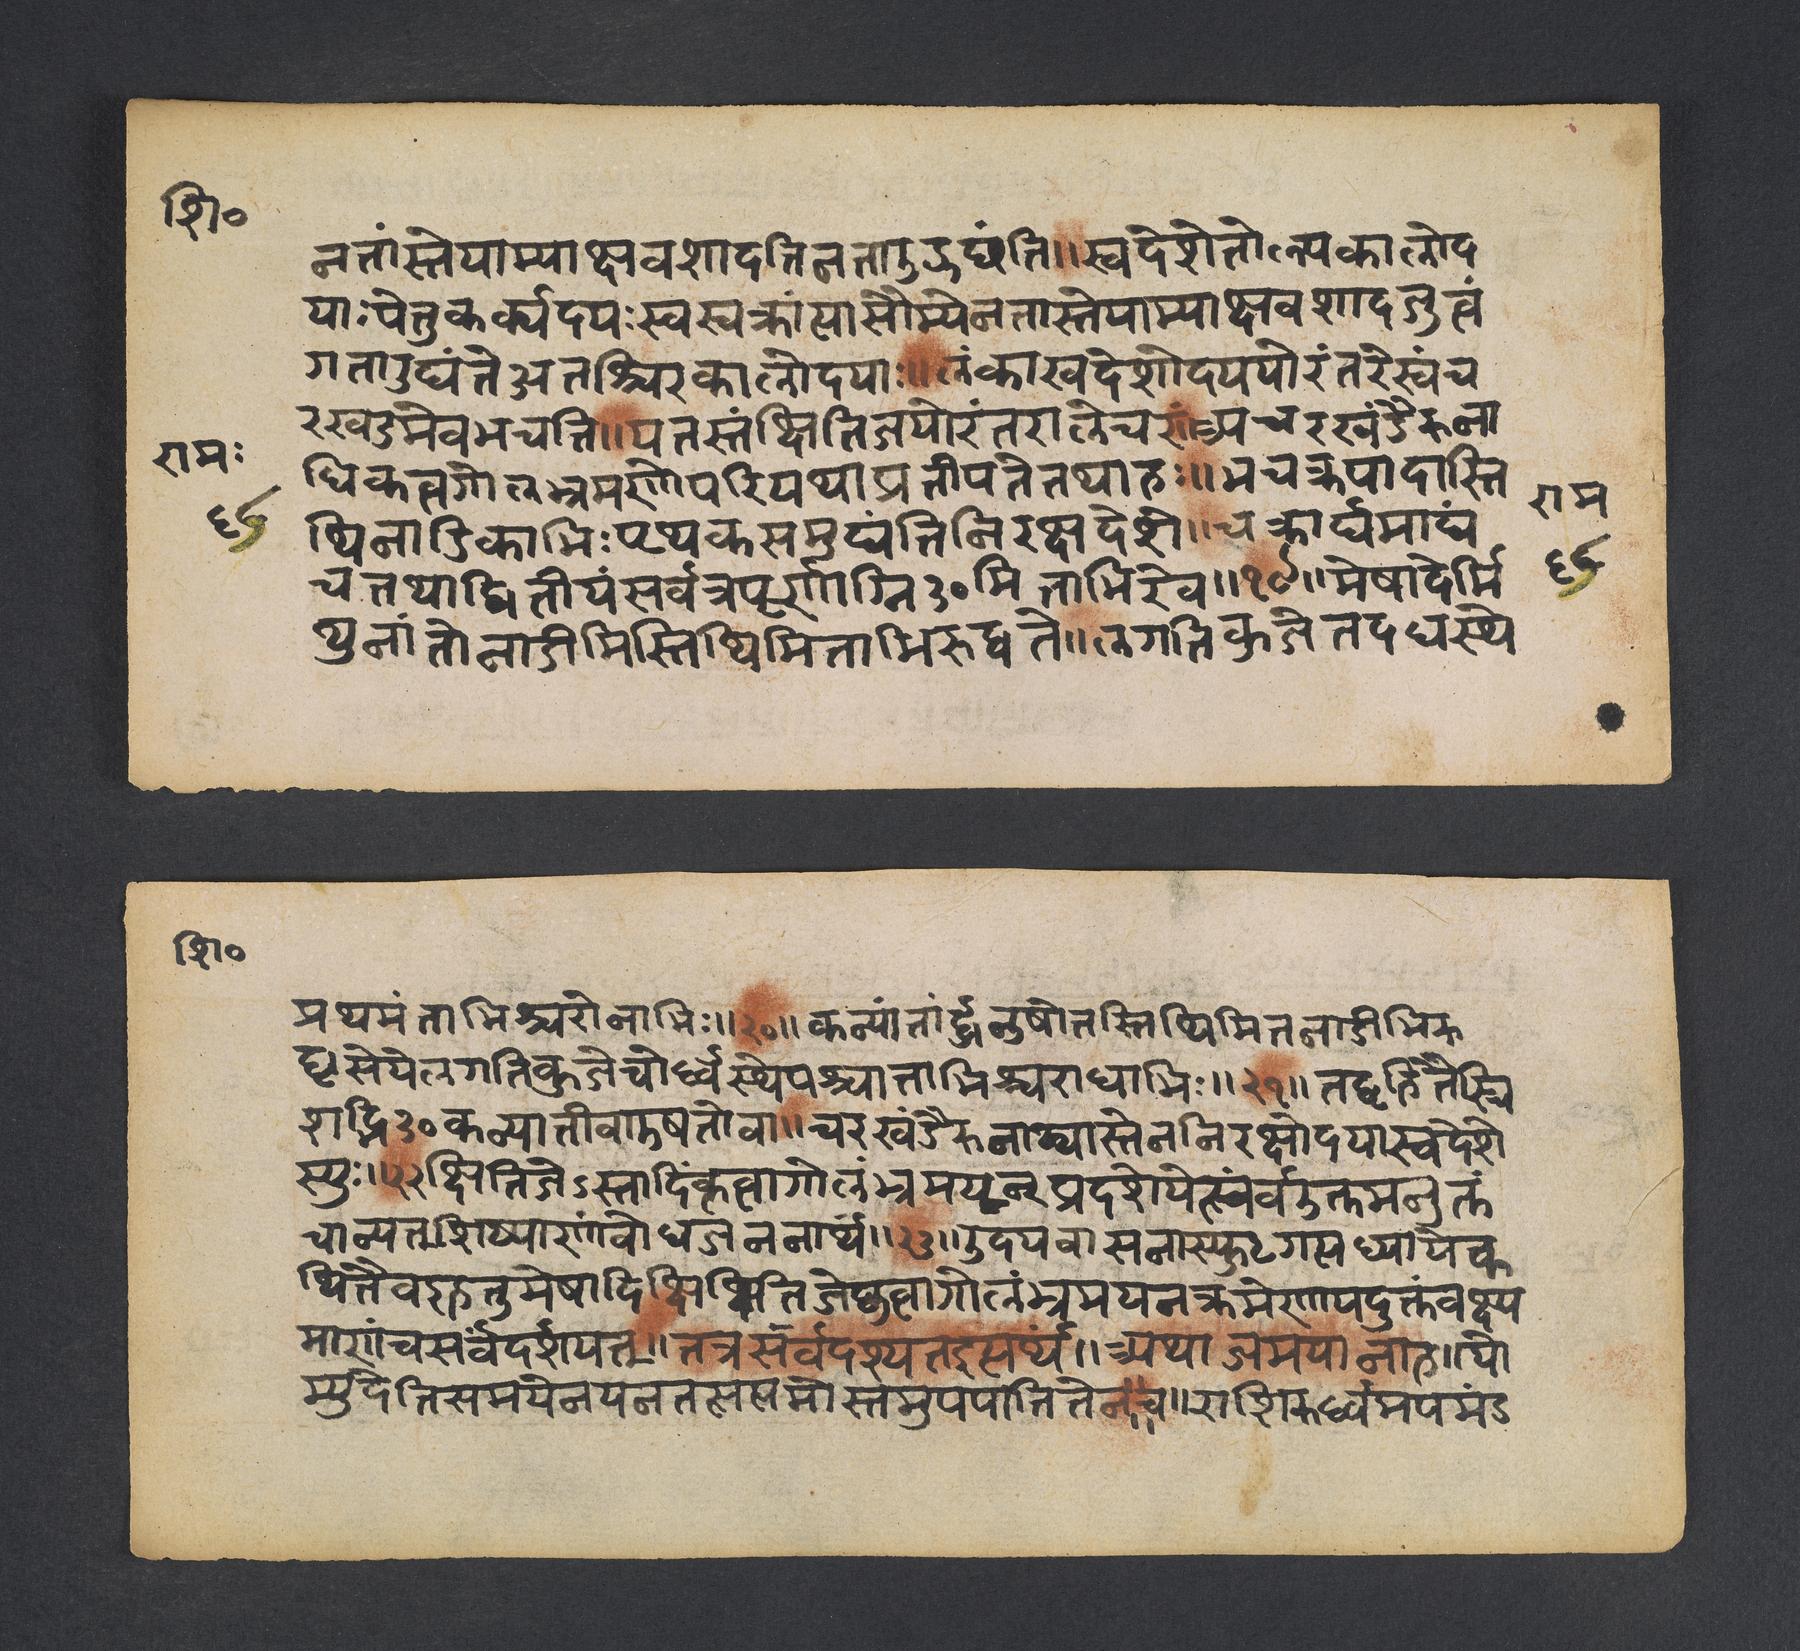 शि०
नतांस्तेयाम्याक्षवशादतिनताउद्यंति॥स्वदेशेतोल्पकालोद
याःयेतुकर्क्यदयःस्वस्वक्रांत्यासौम्येनतास्तेयाम्याक्षवशादजुत्वं
गताउद्यंतेअतश्चिरकालोदयाः॥लंकास्वदेशोदययोरंतरेस्वंच
रखंडमेवभवति॥यतस्तंक्षितिजयोरंतरालेचरं॥अथचरखंडैरूना
रामः
धिकत्वगोलभ्रमणोपरियथाप्रतीयतेतथाहः॥भचक्रपादास्ति
राम
६९
थिनाडिकाभिःपृथक्समुद्यंतिनिरक्षदेशे॥चक्रार्धमाद्यं
६९
चतथाद्वितीयंसर्वत्रपूर्णाग्नि३०मिताभिरेव॥१९॥मेषादेर्मि
थुनांतोनाडीभिस्तिथिमिताभिरुद्वते॥लगतिकुजेतदधस्थे
शि०
प्रथमंताभिश्चरोनाभिः॥२०॥कन्यांतांर्द्धनुषोतस्तिथिमितनाडीभिरु
द्वृत्तेयेलगतिकुजेचोर्ध्वस्थेपश्चात्ताभिश्चराधाभिः॥२१॥तद्वृतितैस्त्रि
शद्भि३०कन्यातोवाऊषतोवा॥चरखंडैरूनाढ्यास्तेननिरक्षोदयास्वदेशे
स्युः॥२२क्षितिजेऽस्तादिंकृत्वागोलंभ्रमयन्प्रदर्शयेत्सर्वउक्तमनुक्तं
चान्यत्शिष्याणांबोधजननार्थं॥२३॥उदयवासनास्फुटगत्यध्यायेक
थितैवइहतुमेषादिक्षितिजेकृत्वागोलंभ्रमयन्क्रमेणयदुक्तंवक्ष्य
माणंचसर्वंदर्शयत्॥तत्रसर्वदृश्यतइत्यर्थः॥अथाअमयानाह॥यो
म्युदेतिसमयेनयेनतत्सप्तमोस्तमुपयातितेनच॥राशिरूर्ध्वमपमंऽ